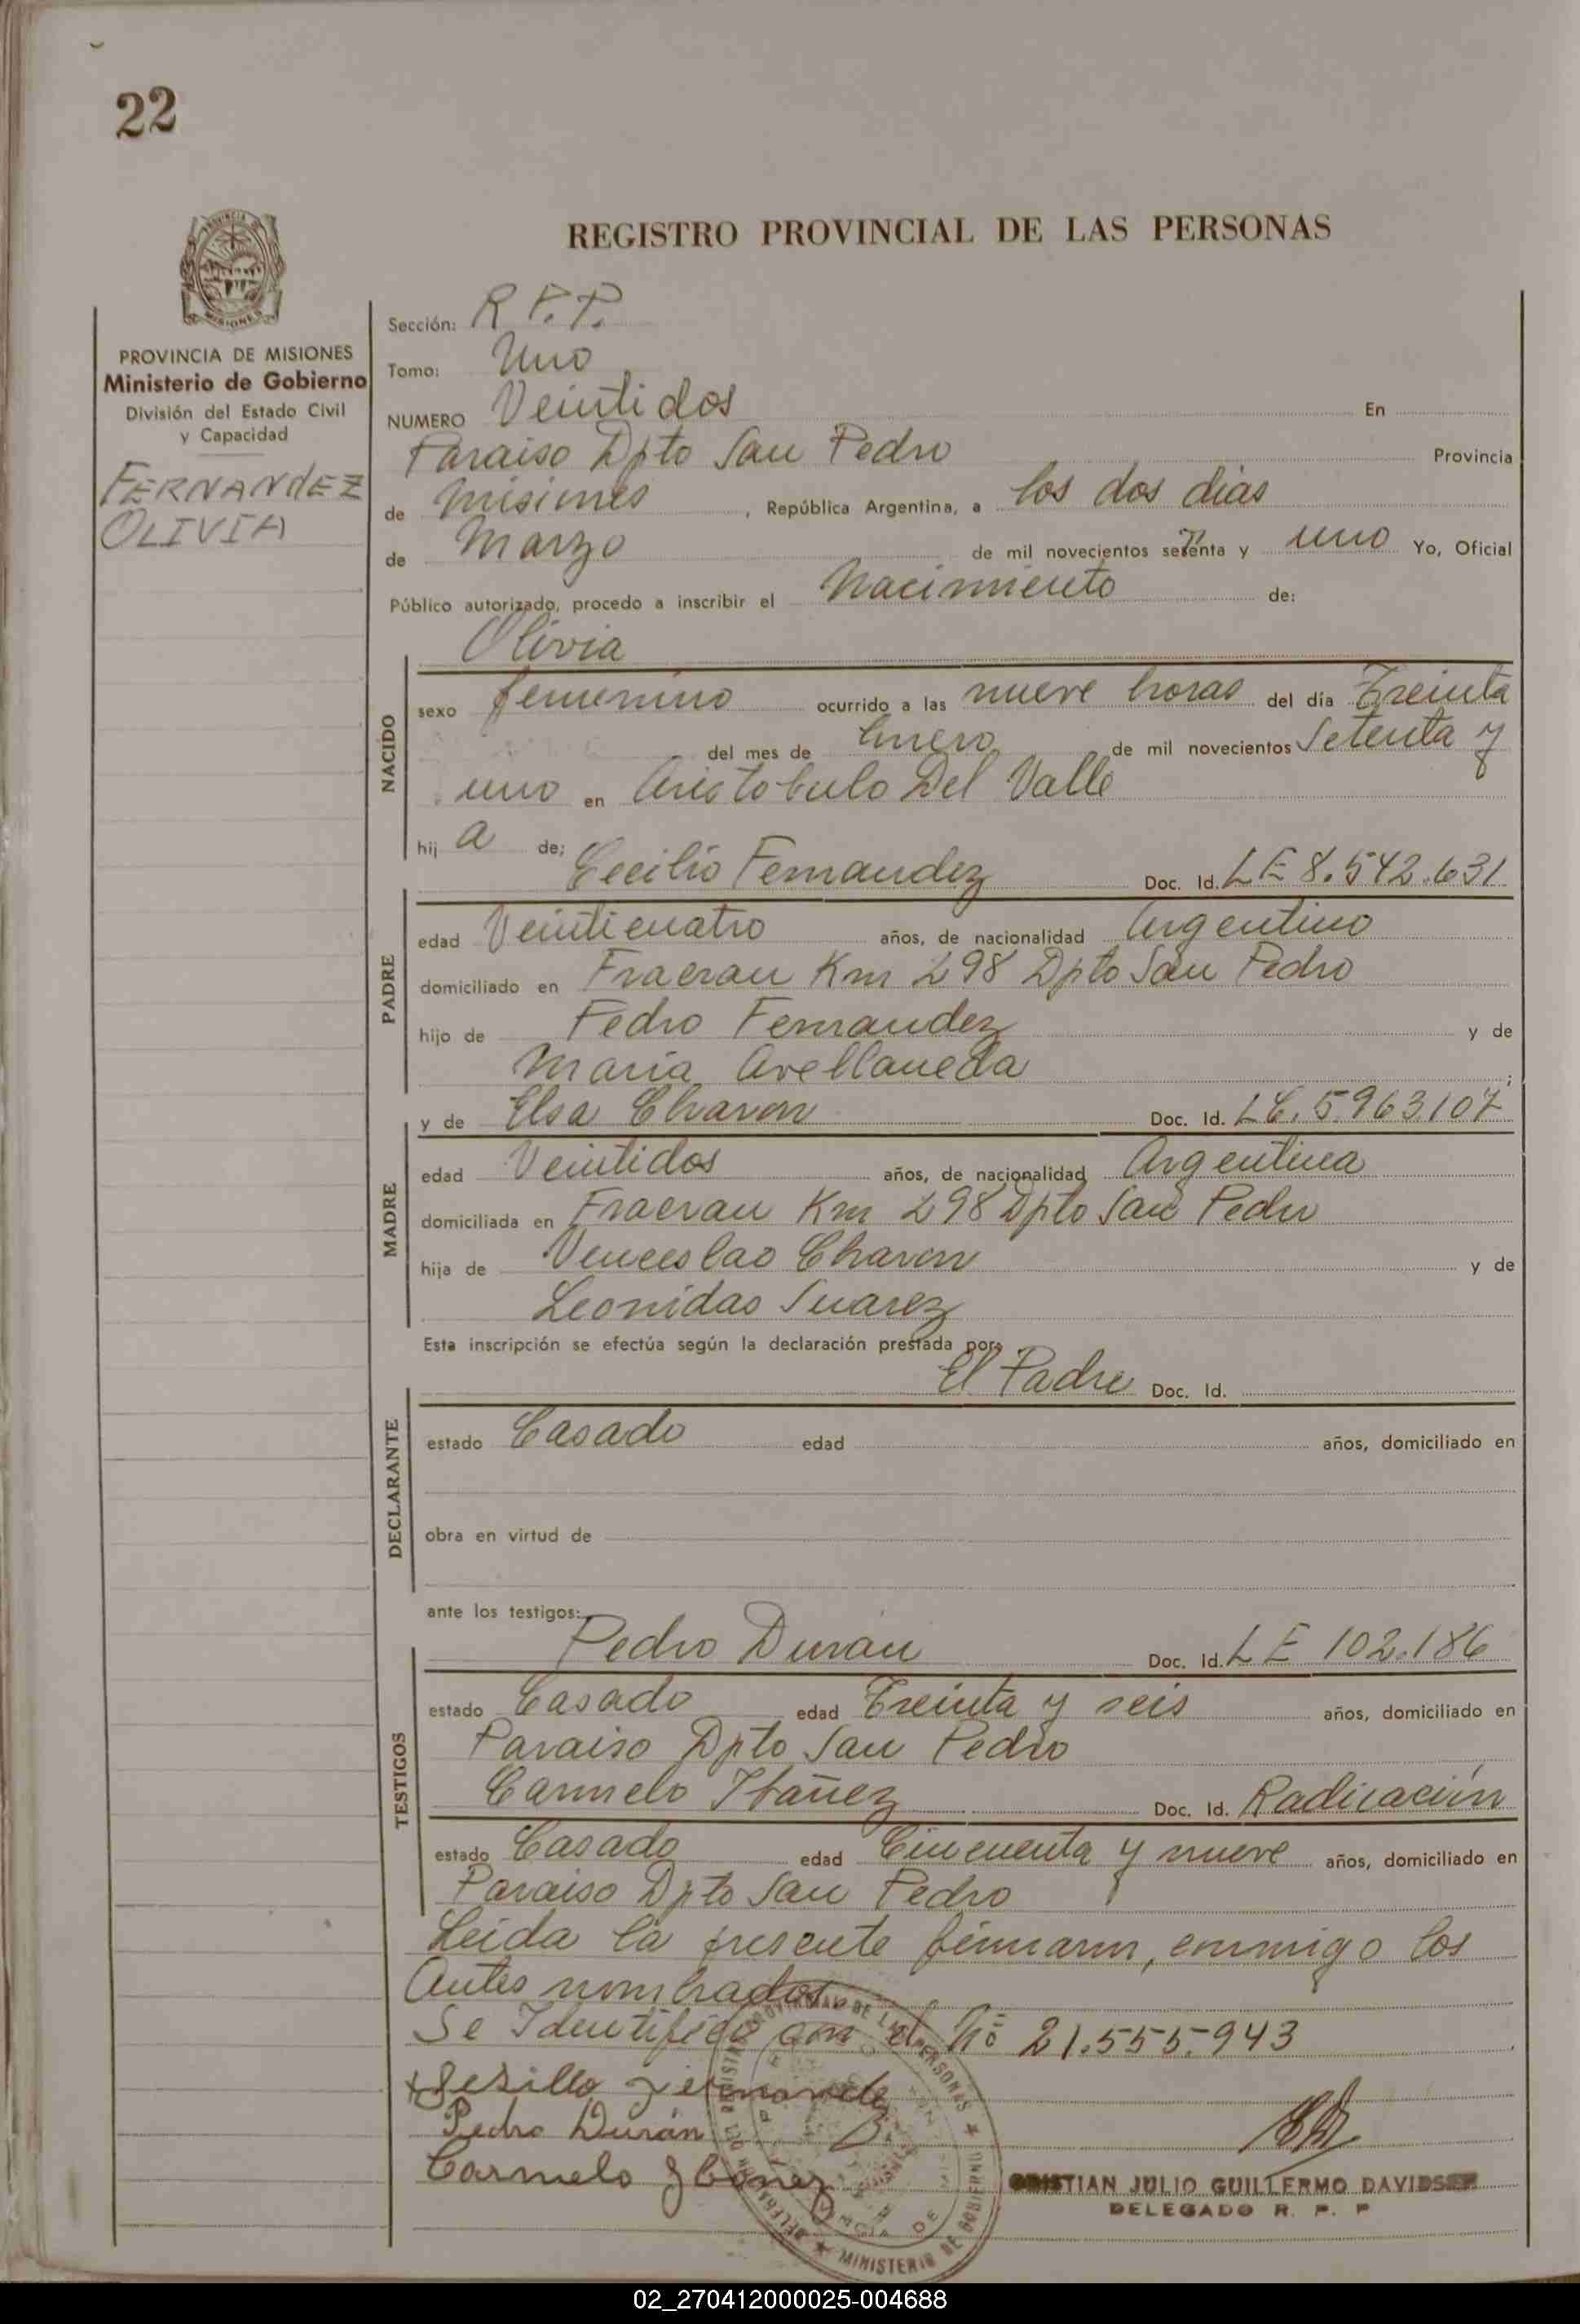 22
REGISTRO PROVINCIAL DE LAS PERSONAS
PROVINCIA DE MISIONES
Ministerio de Gobierno
División del Estado Civil
y Capacidad
FERNANDEZ
OLIVIA
Sección: R.P.P.
Tomo: Uno
NUMERO Veintidos En
Paraiso Dpto San Pedro Provincia
de Misiones, República Argentina, a los dos dias
de Marzo de mil novecientos setenta y uno Yo, Oficial
Público autorizado, procedo a inscribir el Nacimiento de:
Olivia
NACIDO
sexo femenino ocurrido a las nueve horas del día Treinta
del mes de Enero de mil novecientos Setenta y
uno en Aristobulo Del Valle
hij a de;
Cecilio Fernandez Doc. Id. LE 8.542.631
PADRE
edad Veinticuatro años, de nacionalidad Argentino
domiciliado en Fracran Km 298 Dpto San Pedro
hijo de Pedro Fernandez y de
Maria Avellaneda;
y de Elsa Chavon Doc. Id. LC. 5.963.107
MADRE
edad Veintidos años, de nacionalidad Argentina
domiciliada en Fracran Km 298 Dpto San Pedro
hija de Venceslao Chavon y de
Leonidas Suarez
Esta inscripción se efectúa según la declaración prestada por:
El Padre Doc. Id.
DECLARANTE
estado Casado edad años, domiciliado en
obra en virtud de
ante los testigos:
Pedro Durán Doc. Id. LE 102.186
TESTIGOS
estado Casado edad Treinta y seis años, domiciliado en
Paraiso Dpto San Pedro
Carmelo Ibañez Doc. Id. Radicación
estado Casado edad Cincuenta y nueve años, domiciliado en
Paraiso Dpto San Pedro
Leida la presente firmaron, conmigo los
Antes nombrados.
Se Identificó con el Nº 21.555.943
Pedro Durán
Carmelo Ybáñez
CRISTIAN JULIO GUILLERMO DAVIDSEN
DELEGADO R. P. P
MINISTERIO DE GOBIERNO
02_270412000025-004688